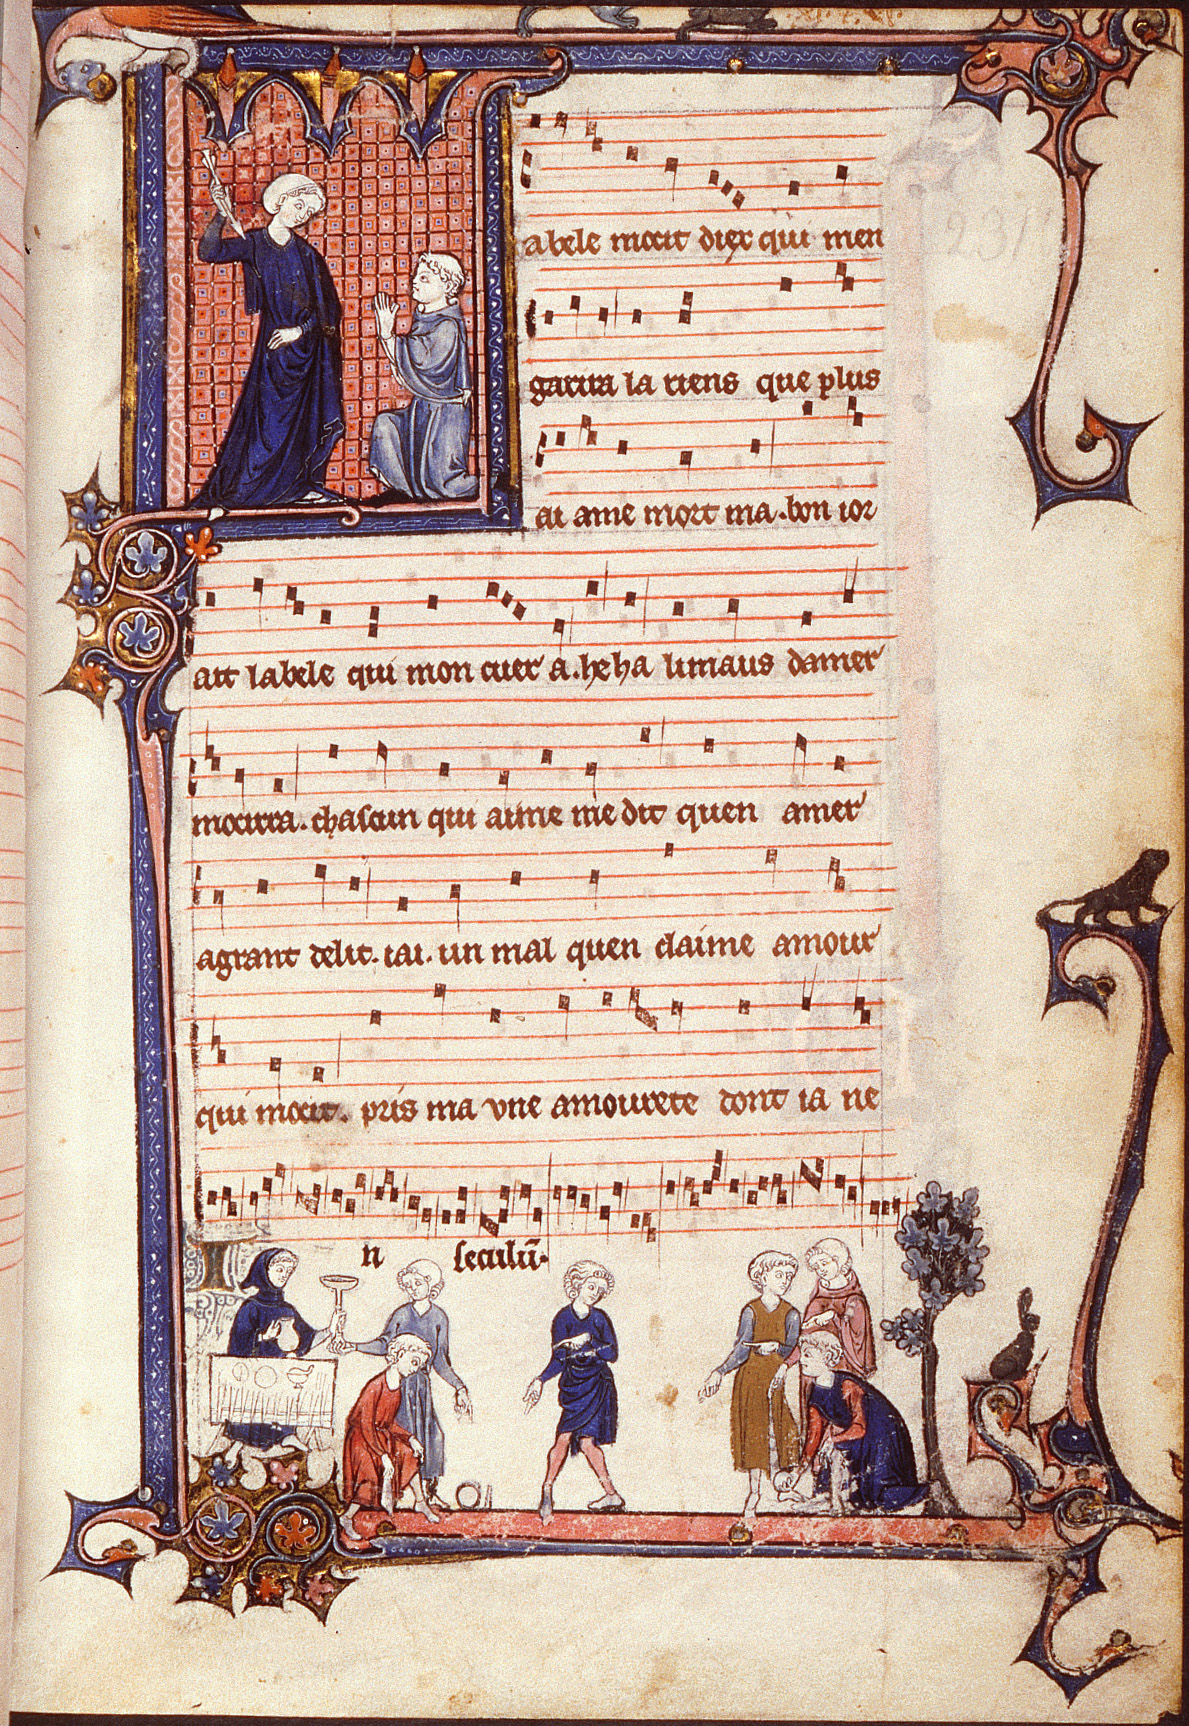 abele mocit diex qui men
garira la riens que plus
ai ame mort ma. bon ior
ait labele qui mon cuer a. he ha li maus damer
mocirra. chascun qui aime me dit quen amer
a grant delit. iai. un mal quen claime amour
qui mocit. pris ma vne amourete dont ia ne
n seculū.
231